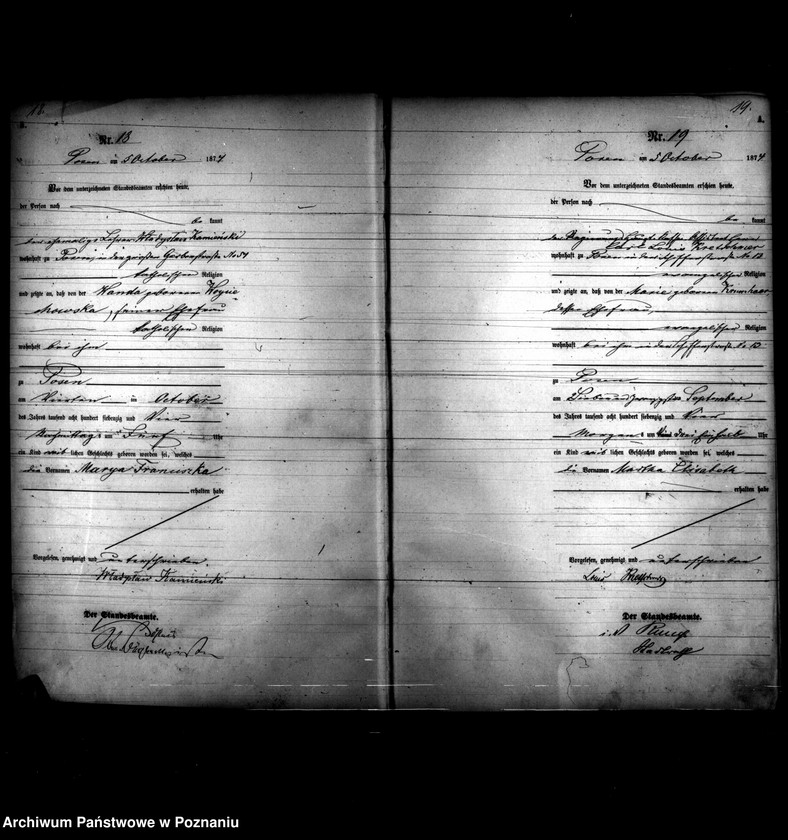 18.
A.
Nr. 18
Posen am 5 October 1874
Vor dem unterzeichneten Standesbeamten erschien heute,
der Person nach
be kannt
der ehemalige Wladyslaw Kamieński
wohnhaft zu Posen, in der großen Gerberstraße No 51
katholischer Religion
und zeigte an, daß von der Wanda geborenen
seiner Ehefrau
katholischer Religion
wohnhaft bei ihm
zu Posen
am Vierten im October
des Jahres tausend acht hundert siebenzig und Vier
Nachmittags um Fünf Uhr
ein Kind weib lichen Geschlechts geboren worden sei, welches
die Vornamen Marya Franciszka
erhalten habe
Vorgelesen, genehmigt und unterschrieben.
Władysław Kamieński
Der Standesbeamte.
19.
A.
Nr. 19
Posen am 5 October 1874
Vor dem unterzeichneten Standesbeamten erschien heute,
der Person nach
be kannt
der Regierungs
Karl Louis Kretschmer
wohnhaft zu Posen in der Schifferstraße No 12
evangelischer Religion
und zeigte an, daß von der Marie geborenen
dessen Ehefrau,
evangelischer Religion
wohnhaft bei ihm in der Schifferstraße No 12
zu Posen
am Sieben und zwanzigsten September
des Jahres tausend acht hundert siebenzig und Vier
Morgens um drei Uhr
ein Kind weib lichen Geschlechts geboren worden sei, welches
die Vornamen Martha Elisabeth
erhalten habe
Vorgelesen, genehmigt und unterschrieben
Louis Kretschmer
Der Standesbeamte.
i. V.
Stadtrath
Archiwum Państwowe w Poznaniu